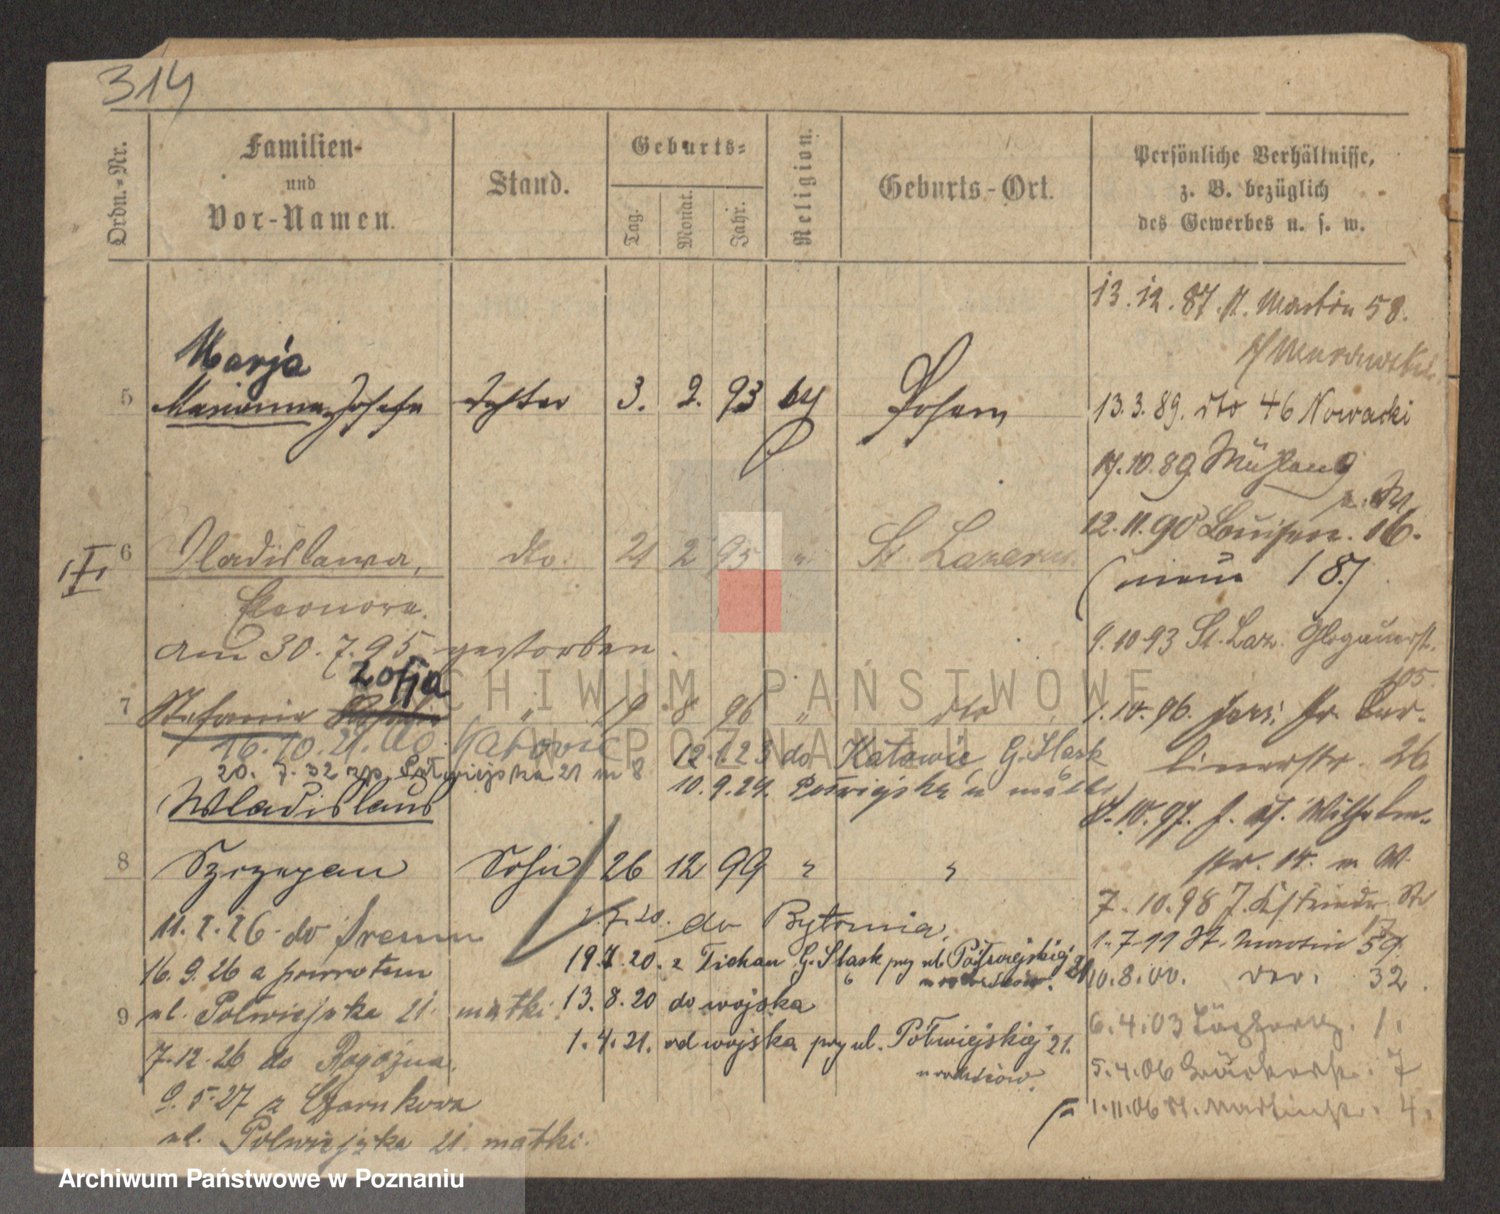 314
Ordn.-Nr.
Familien-
und
Vor-Namen.
Stand.
Geburts-
Tag.
Monat.
Jahr.
Religion.
Geburts-Ort.
Persönliche Verhältnisse,
z. B. bezüglich
des Gewerbes u. s. w.
13.12.87. St. Martin 58.
Murawski
Marja
5 Marianna Josefa Tochter 3. 2. 93 Posen
13.3.89. dto 46 Nowacki
17.10.89 Mühlen 9
12.11.90 Louisen. 16.
(neue 18)
6 Wladislawa, dto. 21 2 95 " St. Lazarus
Eleonora.
am 30.7.95 gestorben.
9.10.93 St. Laz. Glogauerst.
105.
Zofja
7 Stefania " 19 8 96 " dto
1.10.96. Jers. Gr. Ber-
linerstr. 26
16.10.21. do Katowic
12.1.23 do Katowic G. Slask
20.7.32 Półwiejska 21 m 8
10.9.24. Półwiejska u matki
Wladislaus
8 Szczepan Sohn 26 12 99 " "
10.97. Wilhelm-
str. 14. n W.
7.10.98
1.7.99 St. Martin 59.
10.8.00. 32.
11.2.26. do Sremu
20. do Bytomia.
16.9.26 z powrotem
19.7.20. z Tichau G. Slask przy ul. Półwiejskiej 21
u rodziców.
9 ul. Polwiejska 21. matki.
13.8.20 do wojska
7.12.26 do Rogoźna.
1.4.21. od wojska przy ul. Półwiejskiej 21.
u rodziców.
9.5.27 z Czarnkowa
ul. Polwiejska 21. matki.
6.4.03 1.
5.4.06 7
1.11.06 St. Martinstr. 4.
ARCHIWUM PAŃSTWOWE
W POZNANIU
Archiwum Państwowe w Poznaniu